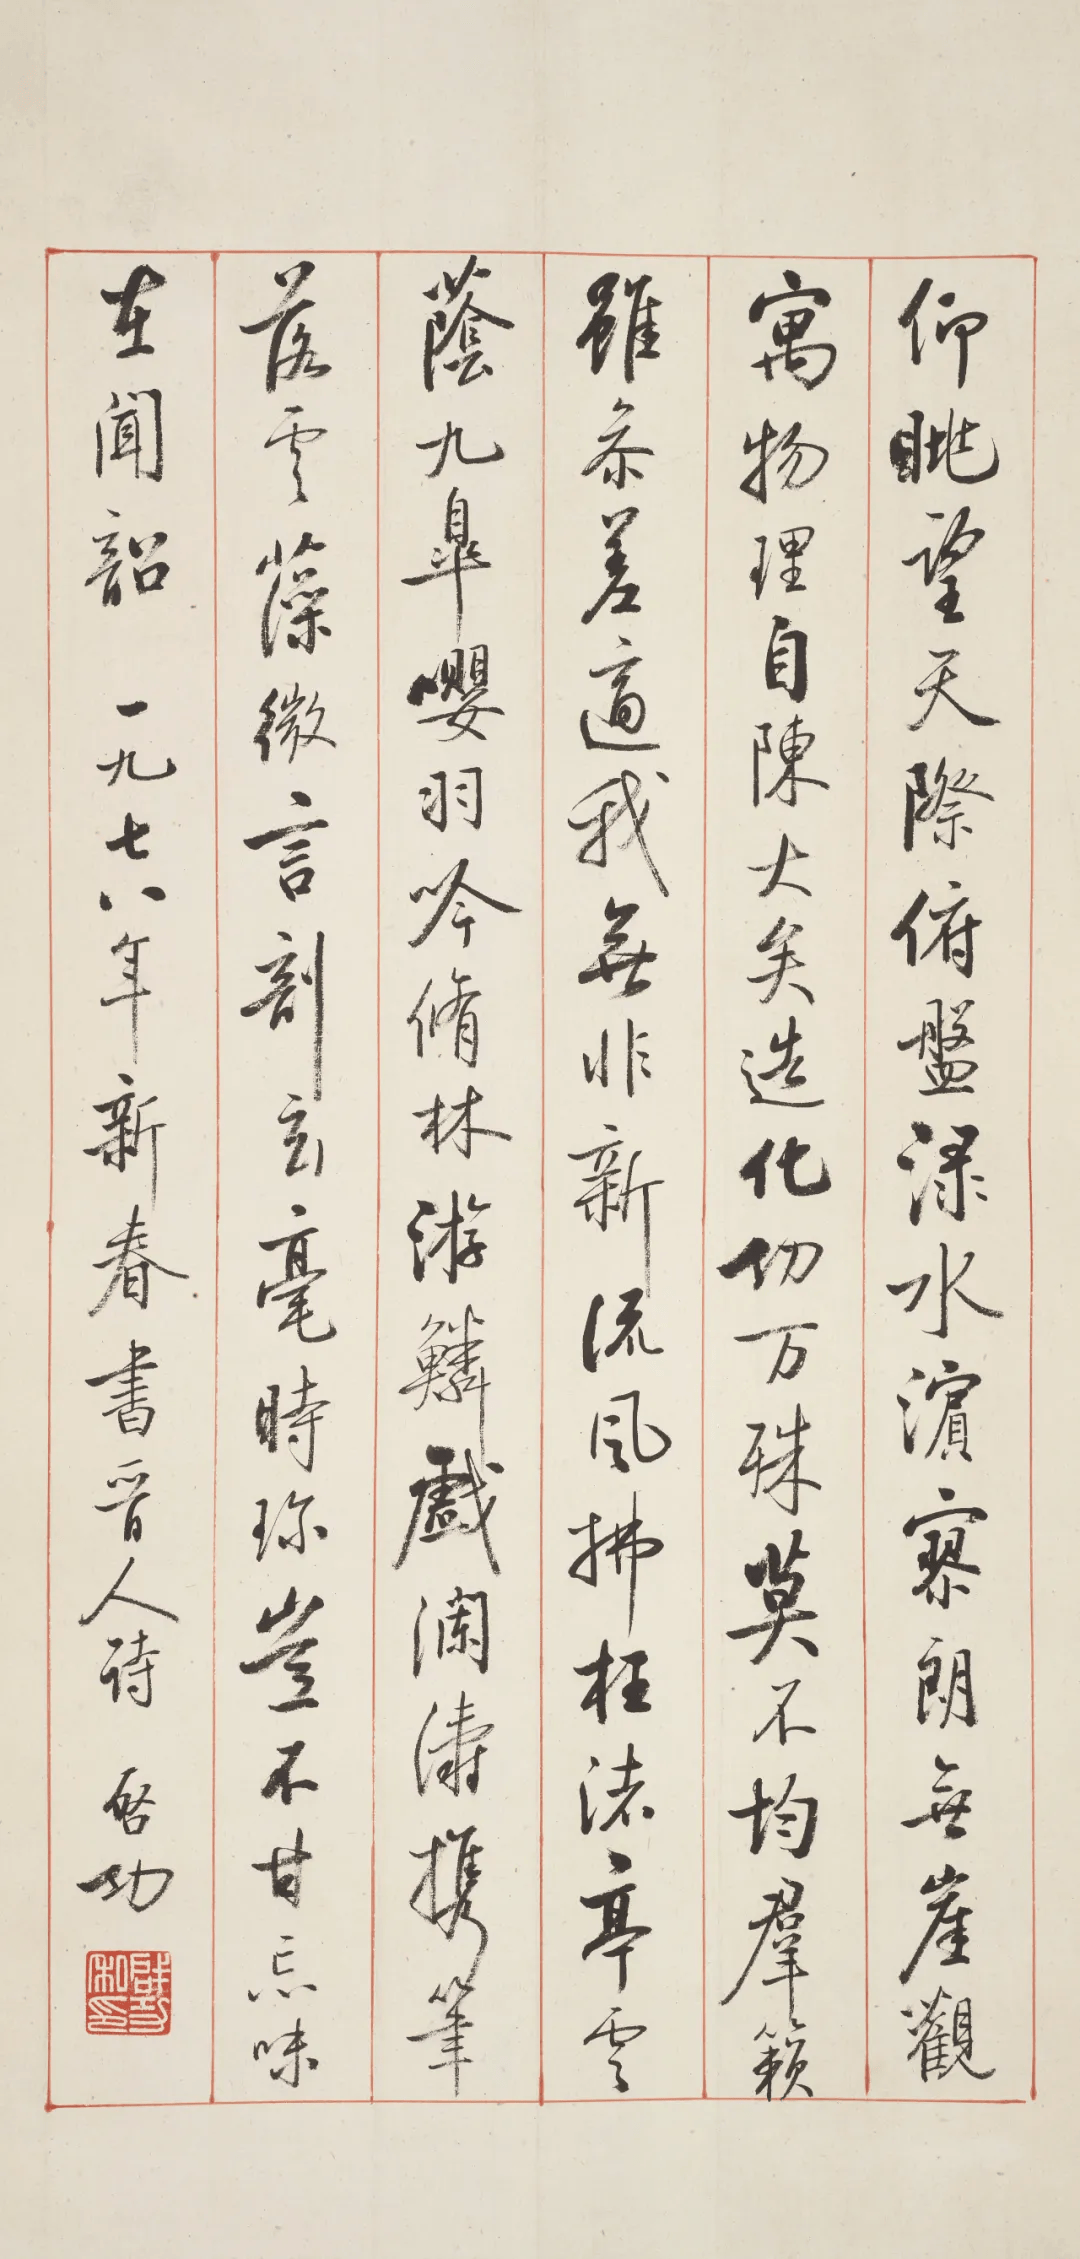 仰眺望天際俯盤渌水濵寥朗無崖觀
寓物理自陳大矣造化功万殊莫不均羣籟
雖参差適我無非新流風拂枉渚亭雲
蔭九臯嚶羽吟脩林游鱗戲瀾濤攜筆
落雲藻微言剖玄毫時珍豈不甘忘味
在聞韶 一九七八年新春書晉人詩 啓功